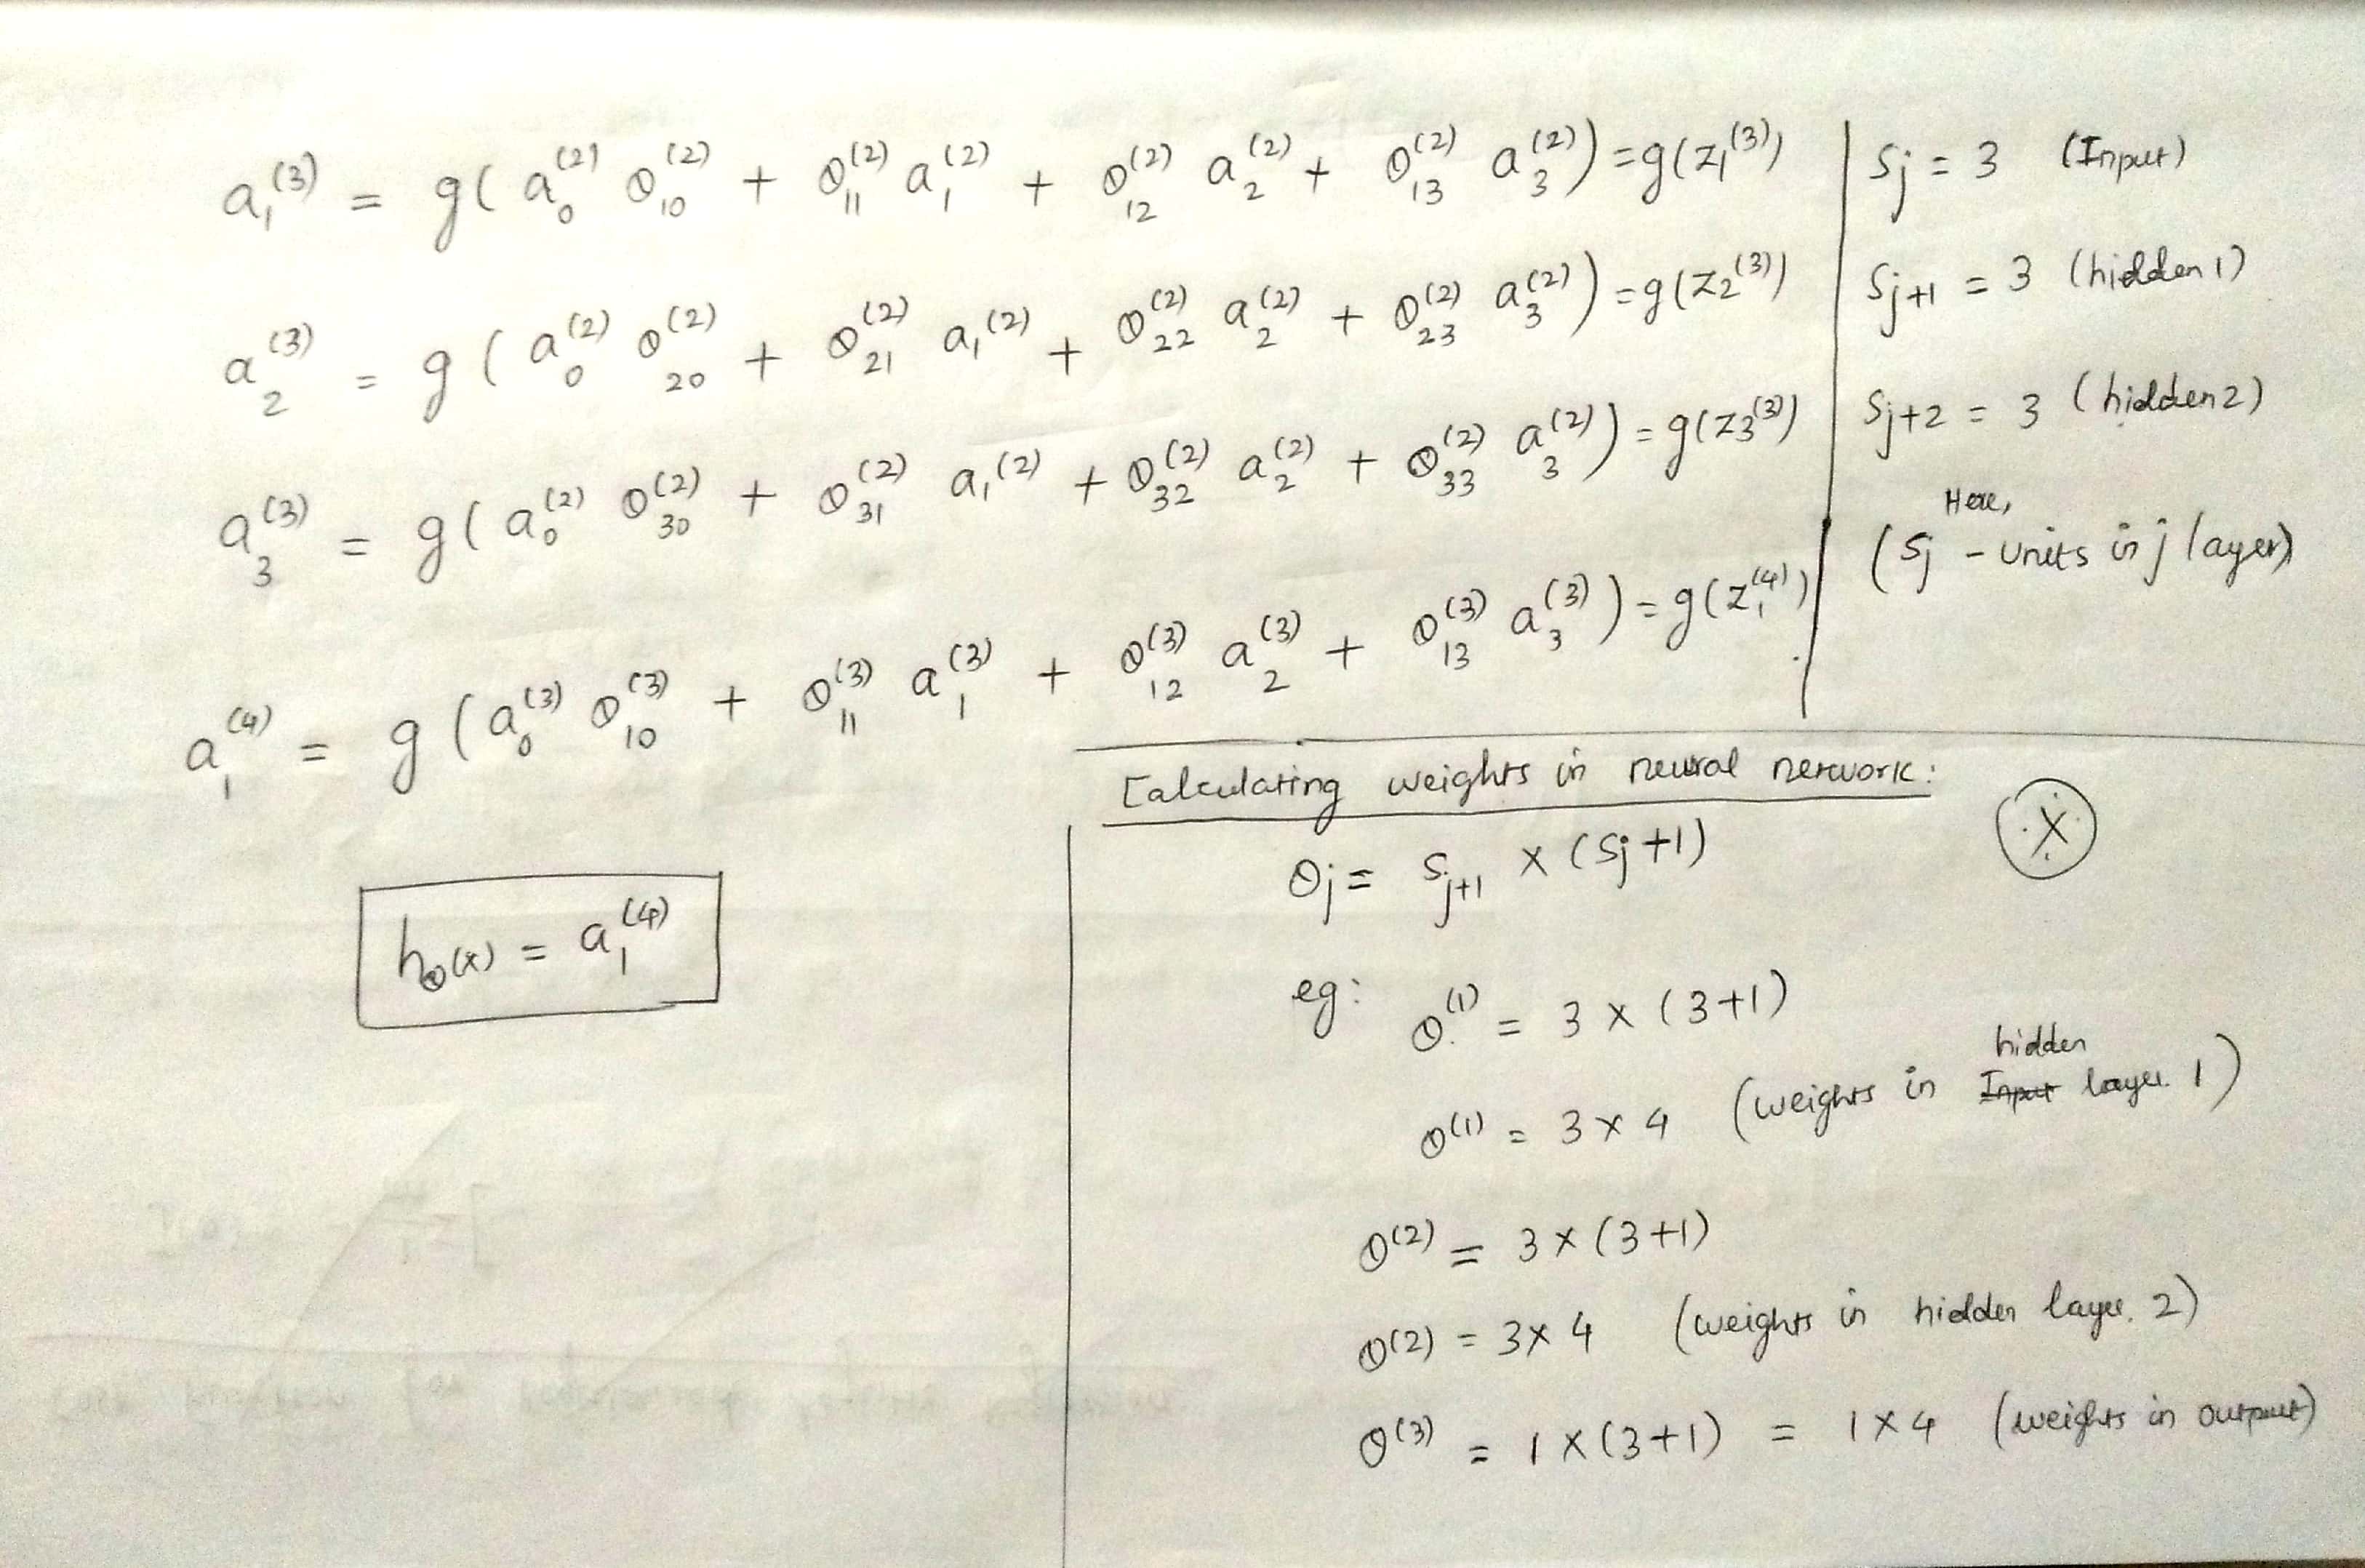 a₁⁽³⁾ = g( a₀⁽²⁾ Θ₁₀⁽²⁾ + Θ₁₁⁽²⁾ a₁⁽²⁾ + Θ₁₂⁽²⁾ a₂⁽²⁾ + Θ₁₃⁽²⁾ a₃⁽²⁾ ) = g(z₁⁽³⁾)
a₂⁽³⁾ = g( a₀⁽²⁾ Θ₂₀⁽²⁾ + Θ₂₁⁽²⁾ a₁⁽²⁾ + Θ₂₂⁽²⁾ a₂⁽²⁾ + Θ₂₃⁽²⁾ a₃⁽²⁾ ) = g(z₂⁽³⁾)
a₃⁽³⁾ = g( a₀⁽²⁾ Θ₃₀⁽²⁾ + Θ₃₁⁽²⁾ a₁⁽²⁾ + Θ₃₂⁽²⁾ a₂⁽²⁾ + Θ₃₃⁽²⁾ a₃⁽²⁾ ) = g(z₃⁽³⁾)
a₁⁽⁴⁾ = g( a₀⁽³⁾ Θ₁₀⁽³⁾ + Θ₁₁⁽³⁾ a₁⁽³⁾ + Θ₁₂⁽³⁾ a₂⁽³⁾ + Θ₁₃⁽³⁾ a₃⁽³⁾ ) = g(z₁⁽⁴⁾)
h_Θ(x) = a₁⁽⁴⁾
Sⱼ = 3 (Input)
Sⱼ₊₁ = 3 (hidden 1)
Sⱼ₊₂ = 3 (hidden 2)
Here,
(Sⱼ - units in j layer)
Calculating weights in neural network:
Θⱼ = Sⱼ₊₁ x (Sⱼ+1)
X
eg: Θ⁽¹⁾ = 3 x (3+1)
hidden
Θ⁽¹⁾ = 3 x 4 (weights in Input layer 1)
Θ⁽²⁾ = 3 x (3+1)
Θ⁽²⁾ = 3 x 4 (weights in hidden layer 2)
Θ⁽³⁾ = 1 x (3+1) = 1 x 4 (weights in output)